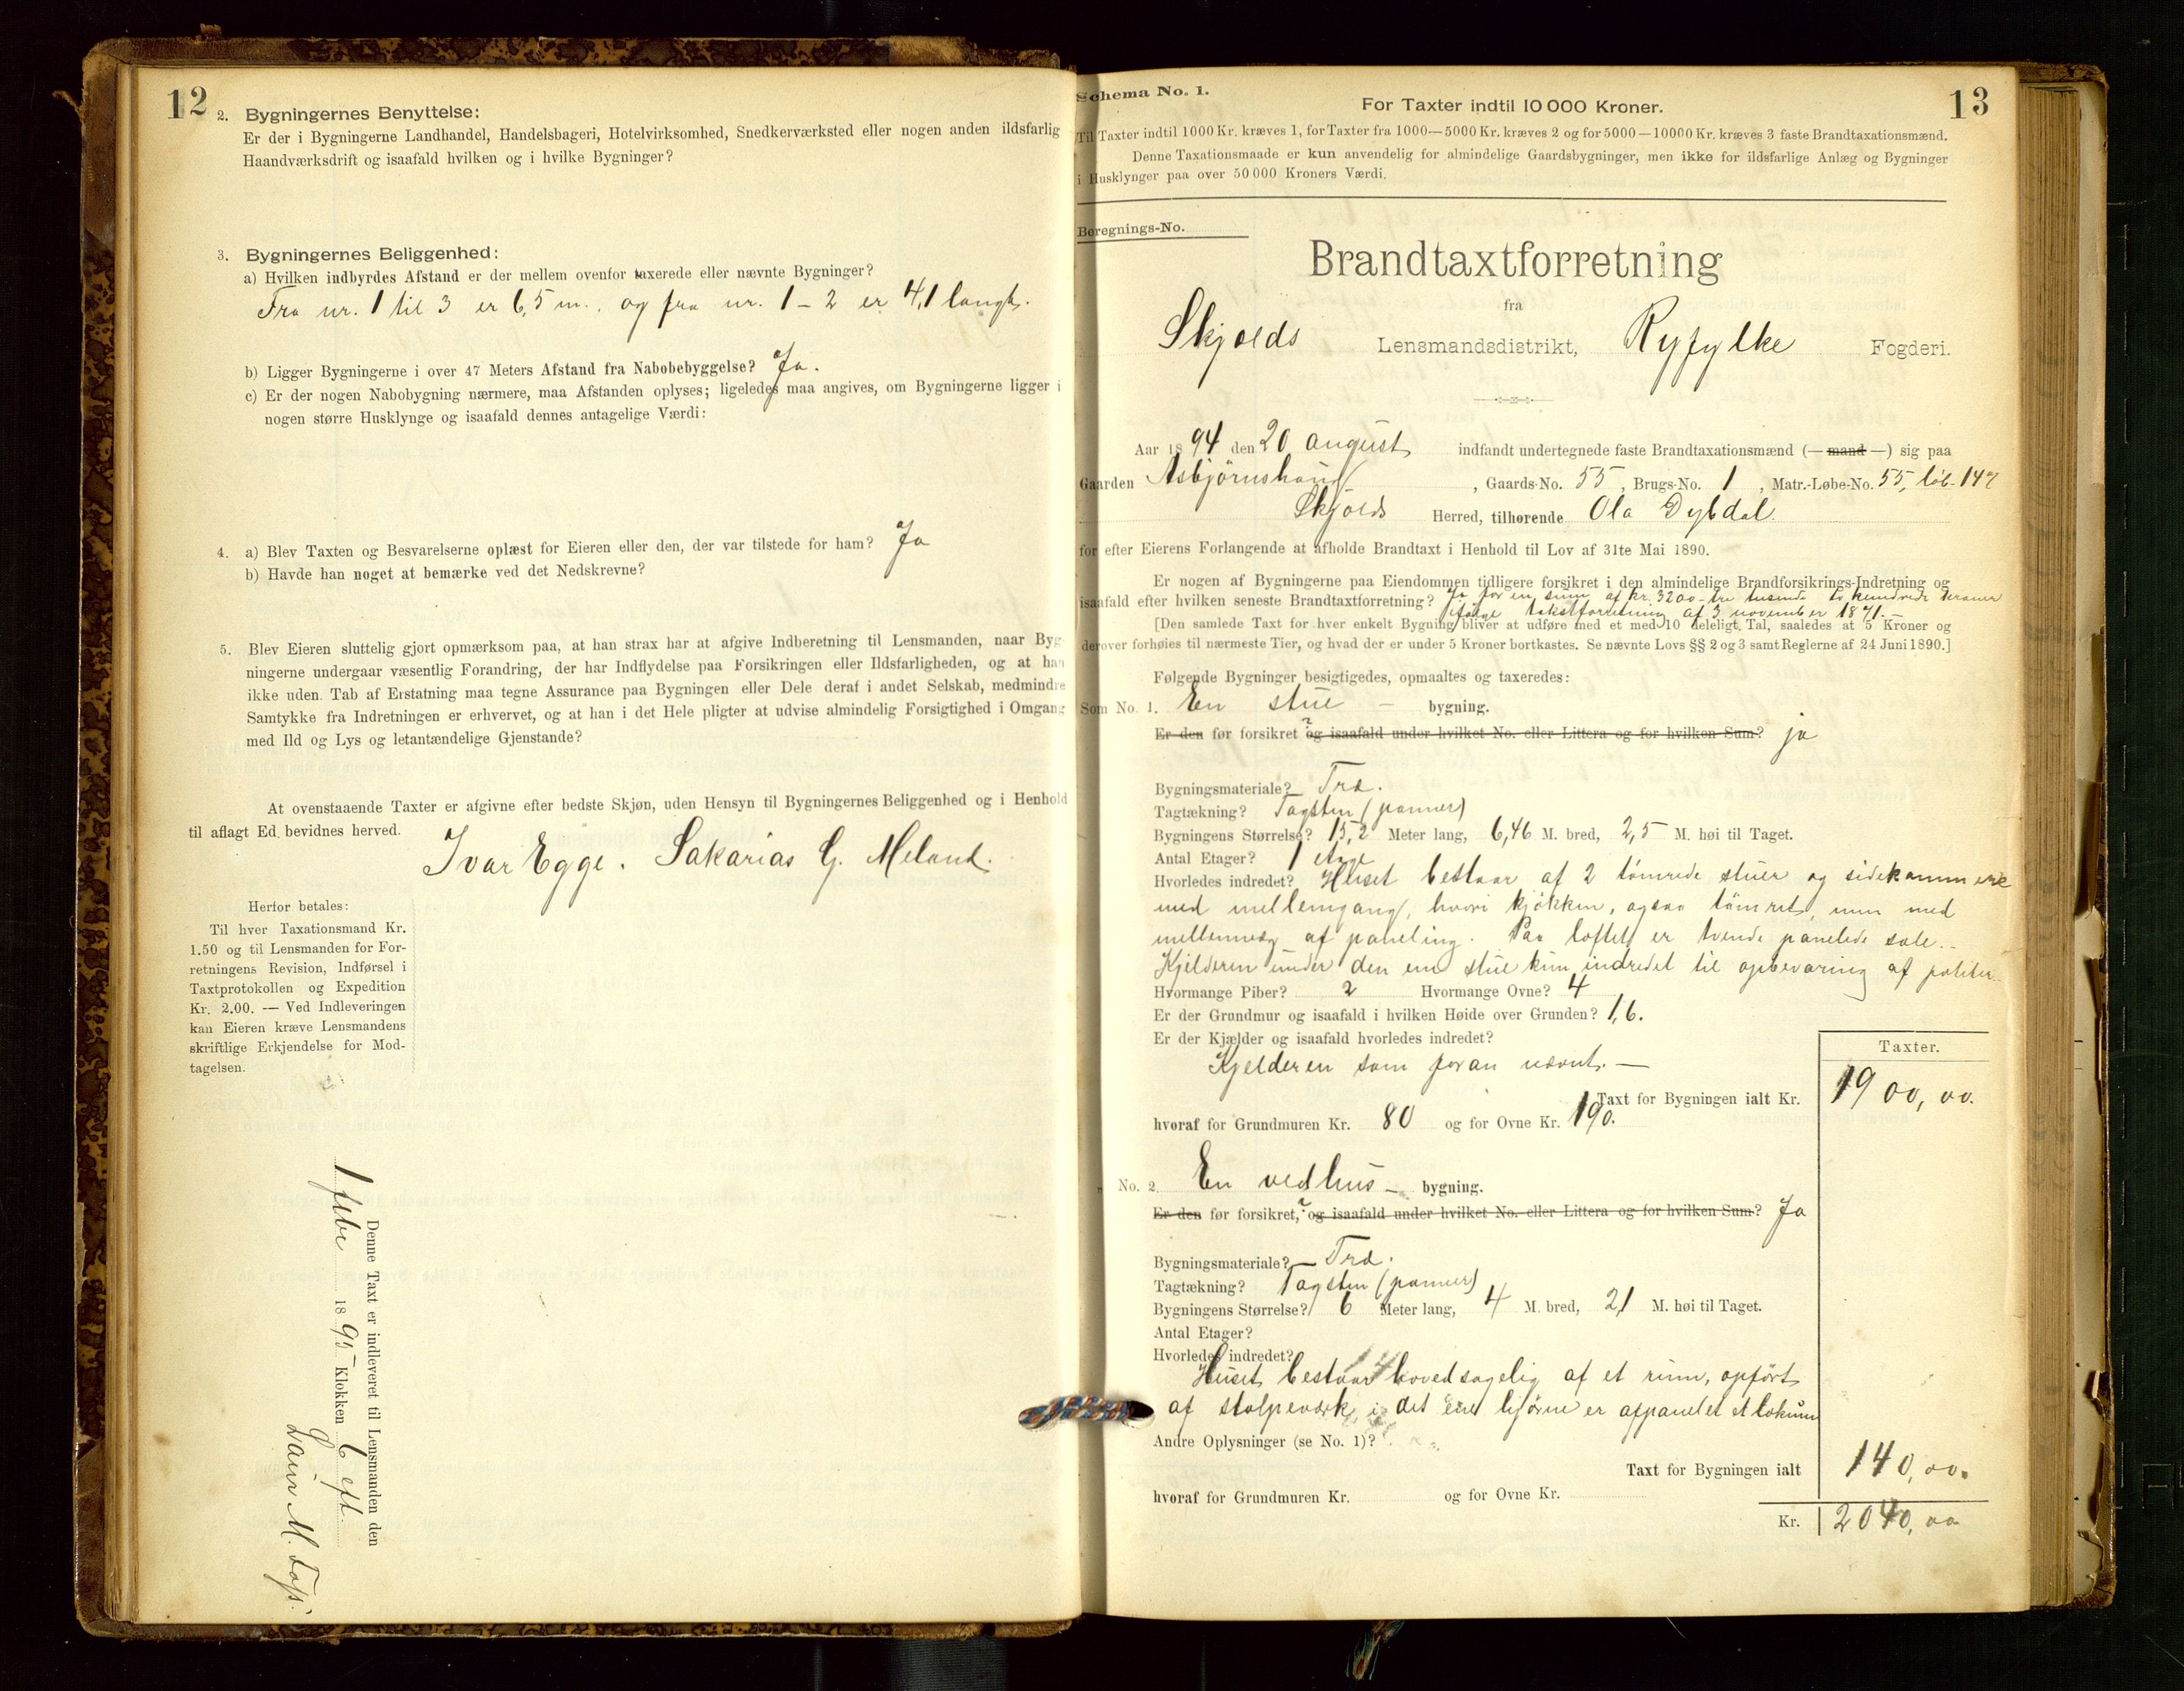 12
2. Bygningernes Benyttelse:
Er der i Bygningerne Landhandel, Handelsbageri, Hotelvirksomhed, Snedkerværksted eller nogen anden ildsfarlig
Haandværksdrift og isaafald hvilken og i hvilke Bygninger?
3. Bygningernes Beliggenhed:
a) Hvilken indbyrdes Afstand er der mellem ovenfor taxerede eller nævnte Bygninger?
Fra nr. 1 til 3 er 6,5 m., og fra nr. 1 - 2 er 4,1 langt.
b) Ligger Bygningerne i over 47 Meters Afstand fra Nabobebyggelse? Ja.
c) Er der nogen Nabobygning nærmere, maa Afstanden oplyses; ligeledes maa angives, om Bygningerne ligger i
nogen større Husklynge og isaafald dennes antagelige Værdi:
4. a) Blev Taxten og Besvarelserne oplæst for Eieren eller den, der var tilstede for ham? Ja
b) Havde han noget at bemærke ved det Nedskrevne?
5. Blev Eieren sluttelig gjort opmærksom paa, at han strax har at afgive Indberetning til Lensmanden, naar Byg-
ningerne undergaar væsentlig Forandring, der har Indflydelse paa Forsikringen eller Ildsfarligheden, og at han
ikke uden Tab af Erstatning maa tegne Assurance paa Bygningen eller Dele deraf i andet Selskab, medmindre
Samtykke fra Indretningen er erhvervet, og at han i det Hele pligter at udvise almindelig Forsigtighed i Omgang
med Ild og Lys og letantændelige Gjenstande?
At ovenstaaende Taxter er afgivne efter bedste Skjøn, uden Hensyn til Bygningernes Beliggenhed og i Henhold
til aflagt Ed, bevidnes herved.
Ivar Egge. Sakarias G. Meland.
Herfor betales:
Til hver Taxationsmand Kr.
1.50 og til Lensmanden for For-
retningens Revision, Indførsel i
Taxtprotokollen og Expedition
Kr. 2.00. — Ved Indleveringen
kan Eieren kræve Lensmandens
skriftlige Erkjendelse for Mod-
tagelsen.
Denne Taxt er indleveret til Lensmanden den
1 febr 1895 Klokken 6 eft.
13
Schema No. 1.
For Taxter indtil 10 000 Kroner.
Til Taxter indtil 1000 Kr. kræves 1, for Taxter fra 1000—5000 Kr. kræves 2 og for 5000—10000 Kr. kræves 3 faste Brandtaxationsmænd.
Denne Taxationsmaade er kun anvendelig for almindelige Gaardsbygninger, men ikke for ildsfarlige Anlæg og Bygninger
i Husklynger paa over 50 000 Kroners Værdi.
Beregnings-No.
Brandtaxtforretning
fra
Skjolds Lensmandsdistrikt, Ryfylke Fogderi.
Aar 1894 den 20 august indfandt undertegnede faste Brandtaxationsmænd (— mand —) sig paa
Gaarden Asbjørnshaug, Gaards-No. 55, Brugs-No. 1, Matr.-Løbe-No. 55, löb. 147
Skjolds Herred, tilhørende Ola Dybdal.
for efter Eierens Forlangende at afholde Brandtaxt i Henhold til Lov af 31te Mai 1890.
Er nogen af Bygningerne paa Eiendommen tidligere forsikret i den almindelige Brandforsikrings-Indretning og
isaafald efter hvilken seneste Brandtaxtforretning? Ja for en sum af kr. 3200 - tre tusende to hundrede kroner
ifølge takstforretning af 3 november 1871.
[Den samlede Taxt for hver enkelt Bygning bliver at udføre med et med 10 deleligt Tal, saaledes at 5 Kroner og
derover forhøies til nærmeste Tier, og hvad der er under 5 Kroner bortkastes. Se nævnte Lovs §§ 2 og 3 samt Reglerne af 24 Juni 1890.]
Følgende Bygninger besigtigedes, opmaaltes og taxeredes:
Som No. 1. En stue - bygning.
Er den før forsikret ? og isaafald under hvilket No. eller Littera og for hvilken Sum? ja
Bygningsmateriale? Træ.
Tagtækning? Tagsten (panner)
Bygningens Størrelse? 15,2 Meter lang, 6,46 M. bred, 2,5 M. høi til Taget.
Antal Etager? 1 etage
Hvorledes indredet? Huset bestaar af 2 tömrede stuer og sidekammere
med mellemgang, hvori kjökken, ogsaa tömret, men med
mellemvæg af paneling. Paa loftet er tvende panelede sale.
Kjelderen under den ene stue kun indredet til opbevaring af poteter
Hvormange Piber? 2 Hvormange Ovne? 4
Er der Grundmur og isaafald i hvilken Høide over Grunden? 1,6.
Er der Kjælder og isaafald hvorledes indredet?
Kjelderen som foran nævnt. —
Taxter.
Taxt for Bygningen ialt Kr. 1900,00.
hvoraf for Grundmuren Kr. 80 og for Ovne Kr. 190.
No. 2. En vedhus - bygning.
Er den før forsikret, ? og isaafald under hvilket No. eller Littera og for hvilken Sum? Ja
Bygningsmateriale? Træ.
Tagtækning? Tagsten (panner)
Bygningens Størrelse? 6 Meter lang, 4 M. bred, 2,1 M. høi til Taget.
Antal Etager?
Hvorledes indredet?
Huset bestaar hovedsagelig af et rum, opfört
af stolpeværk, i det ene hjörne er afpanelet et lokum
Andre Oplysninger (se No. 1)?
Taxt for Bygningen ialt 140,00.
hvoraf for Grundmuren Kr. og for Ovne Kr.
Kr. 2040,00